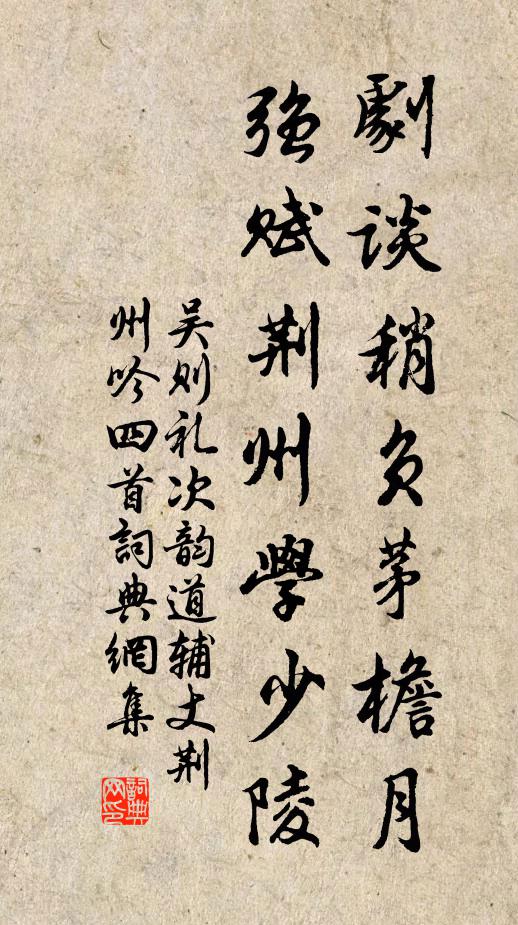 劇談稍負茅檐月
強賦荆州學少陵
吴则礼次韵道辅丈荆
州吟四首詞典網集
詞典网印